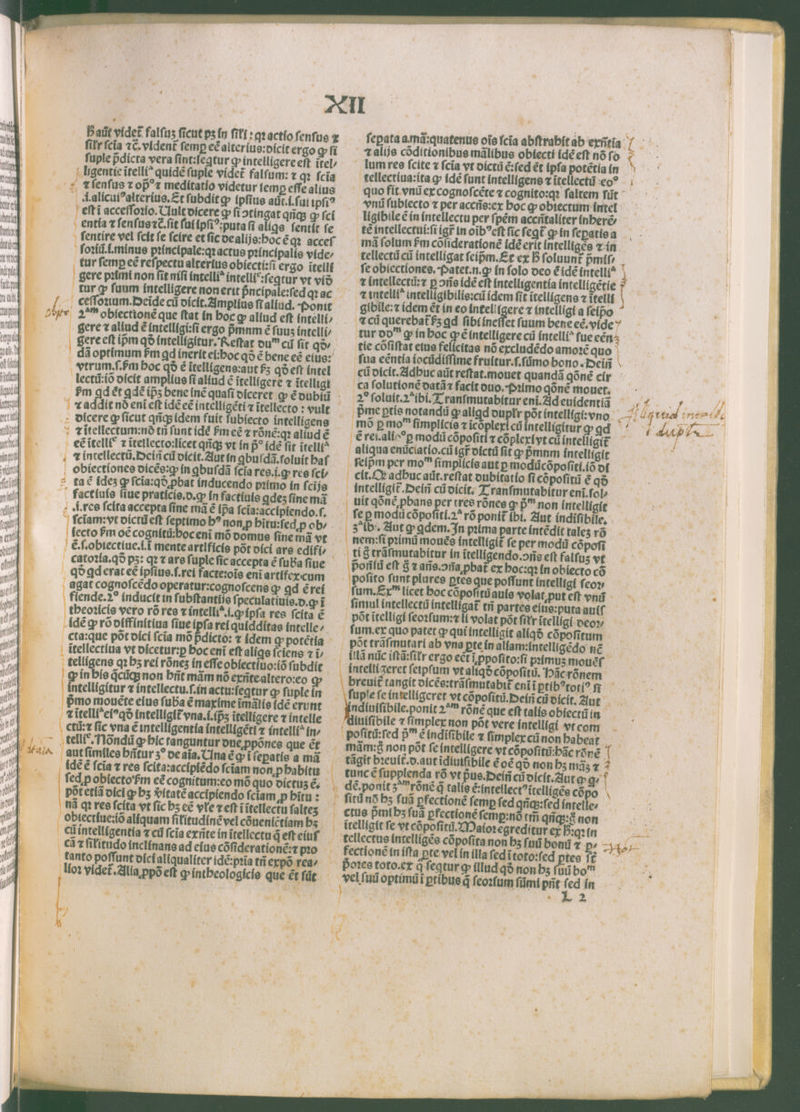 XII
aũt videt̃ falsuʒ sicut pʒ in sili : qꝛ actio sensus ⁊
silr̃ scia ⁊c̃. vident̃ semꝑ eẽ alterius: dicit ergo ꝙ si
suple p̃dicta vera sint: seqtur ꝙ intelligere est ĩtel⸗
ligentie ĩtelliᵃ quidẽ suple videt̃ falsum: ⁊ qꝛ scia
⁊ sensus ⁊ opᵒ ⁊ meditatio videtur semꝑ esse alius
.i. alicuiᵒ alterius. Et subdit ꝙ ipsius aũt .i. sui ipsiᵒ
est ĩ accessorio. Uult dicere ꝙ si
entia ⁊ sensus ⁊c̃. sit sui ipsiᵒ: puta si aliqs sentit se
sentire vel scit se scire et sic de alijs: hoc ẽ qꝛ acces
soriũ .i. minus principale: qꝛ actus principalis vide⸗
tur semꝑ eẽ respectu alterius obiecti: si ergo ĩtelli
gere primi non sit nisi intelliᵃ : seqtur vt vid
tur ꝙ suum intelligere non erit p̃ncipale: sed qꝛ ac
cessorium. Deĩde cũ dicit. Amplius si aliud. Ponit
2ᵃᵐ obiectionẽ que stat in hoc ꝙ aliud est intelli⸗
gere ⁊ aliud ẽ intelligi: si ergo p̃mum ẽ suus intelli⸗
gere est ip̃m qd̃ intelligitur. Restat duᵐ cũ sit qd̃⸗
dã optimum
vtrum .s.
lectũ: iõ dicit amplius si aliud ẽ ĩtelligere ⁊ ĩtelligi
⁊ addit nõ eni est idẽ eẽ intelligẽti ⁊ ĩtellecto : vult
dicere ꝙ sicut qñqʒ idem sunt subiecto intelligens
⁊ ĩtellectum: nõ tñ sunt idẽ
⁊ intellectũ. Deĩn cũ dicit. Aut in qbusdã. soluit has
obiectiones dicẽs: ꝙ in qbusdã scia res .i. ꝙ res sci⸗
ta ẽ idẽʒ ꝙ scia: qd̃ ꝓbat inducendo primo in scijs
factiuis siue praticis. d. ꝙ in factiuis qdeʒ sine mã
.i. res scita accepta sine mã ẽ ip̃a scia: accipiendo .s.
sciam: vt dictũ est septimo hᵒ non ꝓ hĩtu: sed ꝓ ob⸗
iecto
.s. obiectiue .i. ĩ mente artificis põt dici ars edifi⸗
catoria. qd̃ pʒ: qꝛ ⁊ ars suple sic accepta ẽ suba siue
qd̃ qd erat eẽ ipsius .s. rei facte: oĩs eni artifex cum
agat cognoscẽdo operatur: cognoscens ꝙ qd ẽ rei
fiende. 2ᵒ inducit in substantijs speculatiuis. d. ꝙ ĩ
theoricis vero rõ res ⁊ intelliᵃ .i. ꝙ ip̃a res scita ẽ
idẽ ꝙ rõ diffinitiua siue ip̃a rei quidditas intelle⸗
cta: que põt dici scia mõ p̃dicto: ⁊ idem ꝙ potẽtia
ĩtellectiua vt dicetur: ꝓ hoc eni est aliqs sciens ⁊ ĩ⸗
telligens qꝛ hʒ rei rõneʒ in esse obiectiuo: iõ subdit
intelligitur ⁊ intellectu .s. in actu: seqtur ꝙ suple in
p̃mo mouẽte eius suba ẽ maxime ĩmãlis idẽ erunt
⁊ ĩtelliᵃ eiᵒ qd̃ intelligit̃ vna .i. ip̃ʒ ĩtelligere ⁊ intelle
ctũ: ⁊ sic vna ẽ intelligentia intelligẽti ⁊ intelliᵃ in⸗
telliᶜ. Nõndũ ꝙ hic tanguntur due ꝓpõnes que ẽt
aut similes hñtur 3ᵒ de aĩa. Una ẽ ꝙ ĩ sepatis a mã
idẽ ẽ scia ⁊ res scita: accipiẽdo sciam non ꝓ habitu
sed ꝓ obiecto eẽ cognitum: eo mõ quo dictus ẽ.
põt etiã dici accipiendo sciam ꝓ hĩtu :
nã qꝛ res scita vt sic hʒ eẽ vr̃e ⁊ est ĩ ĩtellectu saltes
obiectiue: iõ aliquam sil̃itudinẽ vel cõuenietiam hʒ
cũ intelligentia ⁊ cũ scia exñte in ĩtellectu q̃ est eius
cã ⁊ sil̃itudo inclinans ad eius cõsiderationẽ: ⁊ pro
tanto possunt dici aliqualiter idẽ: pria tñ expõ rea⸗
lior videt̃. Alia ꝓpõ est ꝙ in theologicis que ẽt sũt
sepata a mã: quatenus oĩs scia abstrahit ab exñtia
⁊ alijs cõditionibus mãlibus obiecti idẽ est nõ so
lum res scite ⁊ scia vt dictũ ẽ: sed ẽt ip̃a potẽtia in
tellectiua: ita ꝙ idẽ sunt intelligens ⁊ ĩtellectũ eoᵒ
quo fit vnũ ex cognoscẽte ⁊ cognito: qꝛ saltem sũt
vnũ subiecto ⁊ per accñs: ex hoc ꝙ obiectum intel
ligibile ẽ in intellectu per sp̃em accñtaliter inherẽ⸗
tẽ intellectui: si igr̃ in oibᵒ est sic seqt̃ ꝙ in sepatis a
mã solum cõsiderationẽ idẽ erit intelligẽs ⁊ in
tellectũ cũ intelligat seip̃m. Et ex soluunt̃ p̃mis⸗
se obiectiones. Patet .n. ꝙ in solo deo ẽ idẽ intelliᵃ
⁊ intellectũ: ⁊ ꝑ cõñs idẽ est intelligentia intelligẽtie
⁊ intelliᵃ intelligibilis: cũ idem sit ĩtelligens ⁊ ĩtelli
gibile: ⁊ idem ẽt in eo intelligere ⁊ intelligi a seipo
⁊ cũ querebat̃ sʒ qd sibi inesset suum bene eẽ. vide⸗
tur doᵐ ꝙ in hoc ꝙ ẽ intelligere cũ intelliᵃ sue eẽn⸗
tie cõsistat eius felicitas nõ excludẽdo amorẽ quo
sua eẽntia iocũdissime fruitur .s. sũmo bono. Deĩn
cũ dicit. Adhuc aũt restat. mouet quandã qõnẽ cir
ca solutionẽ datã ⁊ facit duo. Primo qõnẽ mouet.
2ᵒ soluit. 2ᵃ ibi. Transmutabitur eni. Ad euidentiã
p̃me ptis notandũ ꝙ aliqd duplr̃ põt intelligi: vno
mõ ꝑ moᵐ simplicis ⁊ ĩcõplexi cũ intelligitur ꝙ qd
ẽ rei. aliᵒ ꝑ modũ cõpositi ⁊ cõplexi vt cũ intelligit̃
aliqua enũciatio. cũ igr̃ dictũ sit ꝙ p̃mum intelligit
seip̃m per moᵐ simplicis aut ꝑ modũ cõpositi. iõ di
cit. Q̃ adhuc aũt. restat dubitatio si cõpositũ ẽ qd̃
intelligit̃. Deĩn cũ dicit. Transmutabitur eni. sol⸗
uit qõnẽ ꝓbans per tres rõnes ꝙ p̃ᵐ non intelligit
se ꝑ modũ cõpositi. 2ᵃ rõ ponit̃ ibi. Aut indisibile.
3ᵃ ibi. Aut ꝙ qdem. In prima parte intẽdit taleʒ rõ
nem: si primũ mouẽs intelligit̃ se per modũ cõposi
ti ġ trãsmutabitur in ĩtelligendo. cõñs est falsuʒ vt
posito sunt plures ptes que possunt intelligi seor
sum. Exᵐ licet hoc cõpositũ auis volat, put est vnũ
simul intellectũ intelligat̃ tñ partes eius: puta auis
põt ĩtelligi seorsum: ⁊ li volat põt silr̃ ĩtelligi deor⸗
sum. ex quo patet ꝙ qui intelligit aliqd̃ cõpositum
põt trãsmutari ab vna pte in aliam: intelligẽdo nẽ
illã nũc istã: silr̃ ergo eẽt ĩ ꝓposito: si primuʒ mouẽs
intelligeret seipsum vt aliqd̃ cõpositũ. Hãc rõnem
breuit̃ tangit dicẽs: trãsmutabit̃ eni ĩ ptibᵒ totiᵒ si
suple se intelligeret vt cõpositũ. Deĩn cũ dicit. Aut
indiuisibile. ponit 2ᵃᵐ rõnẽ que est talis obiectũ in
diuisibile ⁊ simplex non põt vere intelligi vt com
positũ: sed p̃ᵐ ẽ indisibile ⁊ simplex cũ non habeat
mãm: ġ non põt se intelligere vt cõpositũ: hãc rõnẽ
tãgit breuit̃. d. aut idiuisibile ẽ oẽ qd̃ non hʒ mãʒ ⁊
tunc ẽ supplenda rõ vt pus. Deĩn cũ dicit. Aut ꝙ q⸗
dẽ. ponit 3ᵃᵐ rõnẽ q̃ talis ẽ: intellectᵒ ĩtelligẽs cõpo
sitũ nõ hʒ suã ꝑfectionẽ semꝑ sed qñqʒ: sed intelle⸗
ctus p̃mi hʒ suã ꝑfectionẽ semꝑ: nõ tñ qñqʒ: ġ non
ĩtelligit se vt cõpositũ. Maior egreditur ex : qꝛ in
tellectus intelligẽs cõposita non hʒ suũ bonũ ⁊ ꝑ⸗
fectionẽ in ista pte vel in illa sed ĩ toto: sed ptes st̃
p̃ores toto. ex q̃ seqtur ꝙ illud qd̃ non hʒ suũ boᵐ
vel suũ optimũ ĩ ptibus q̃ seorsum sũmi pñt sed in
L 2